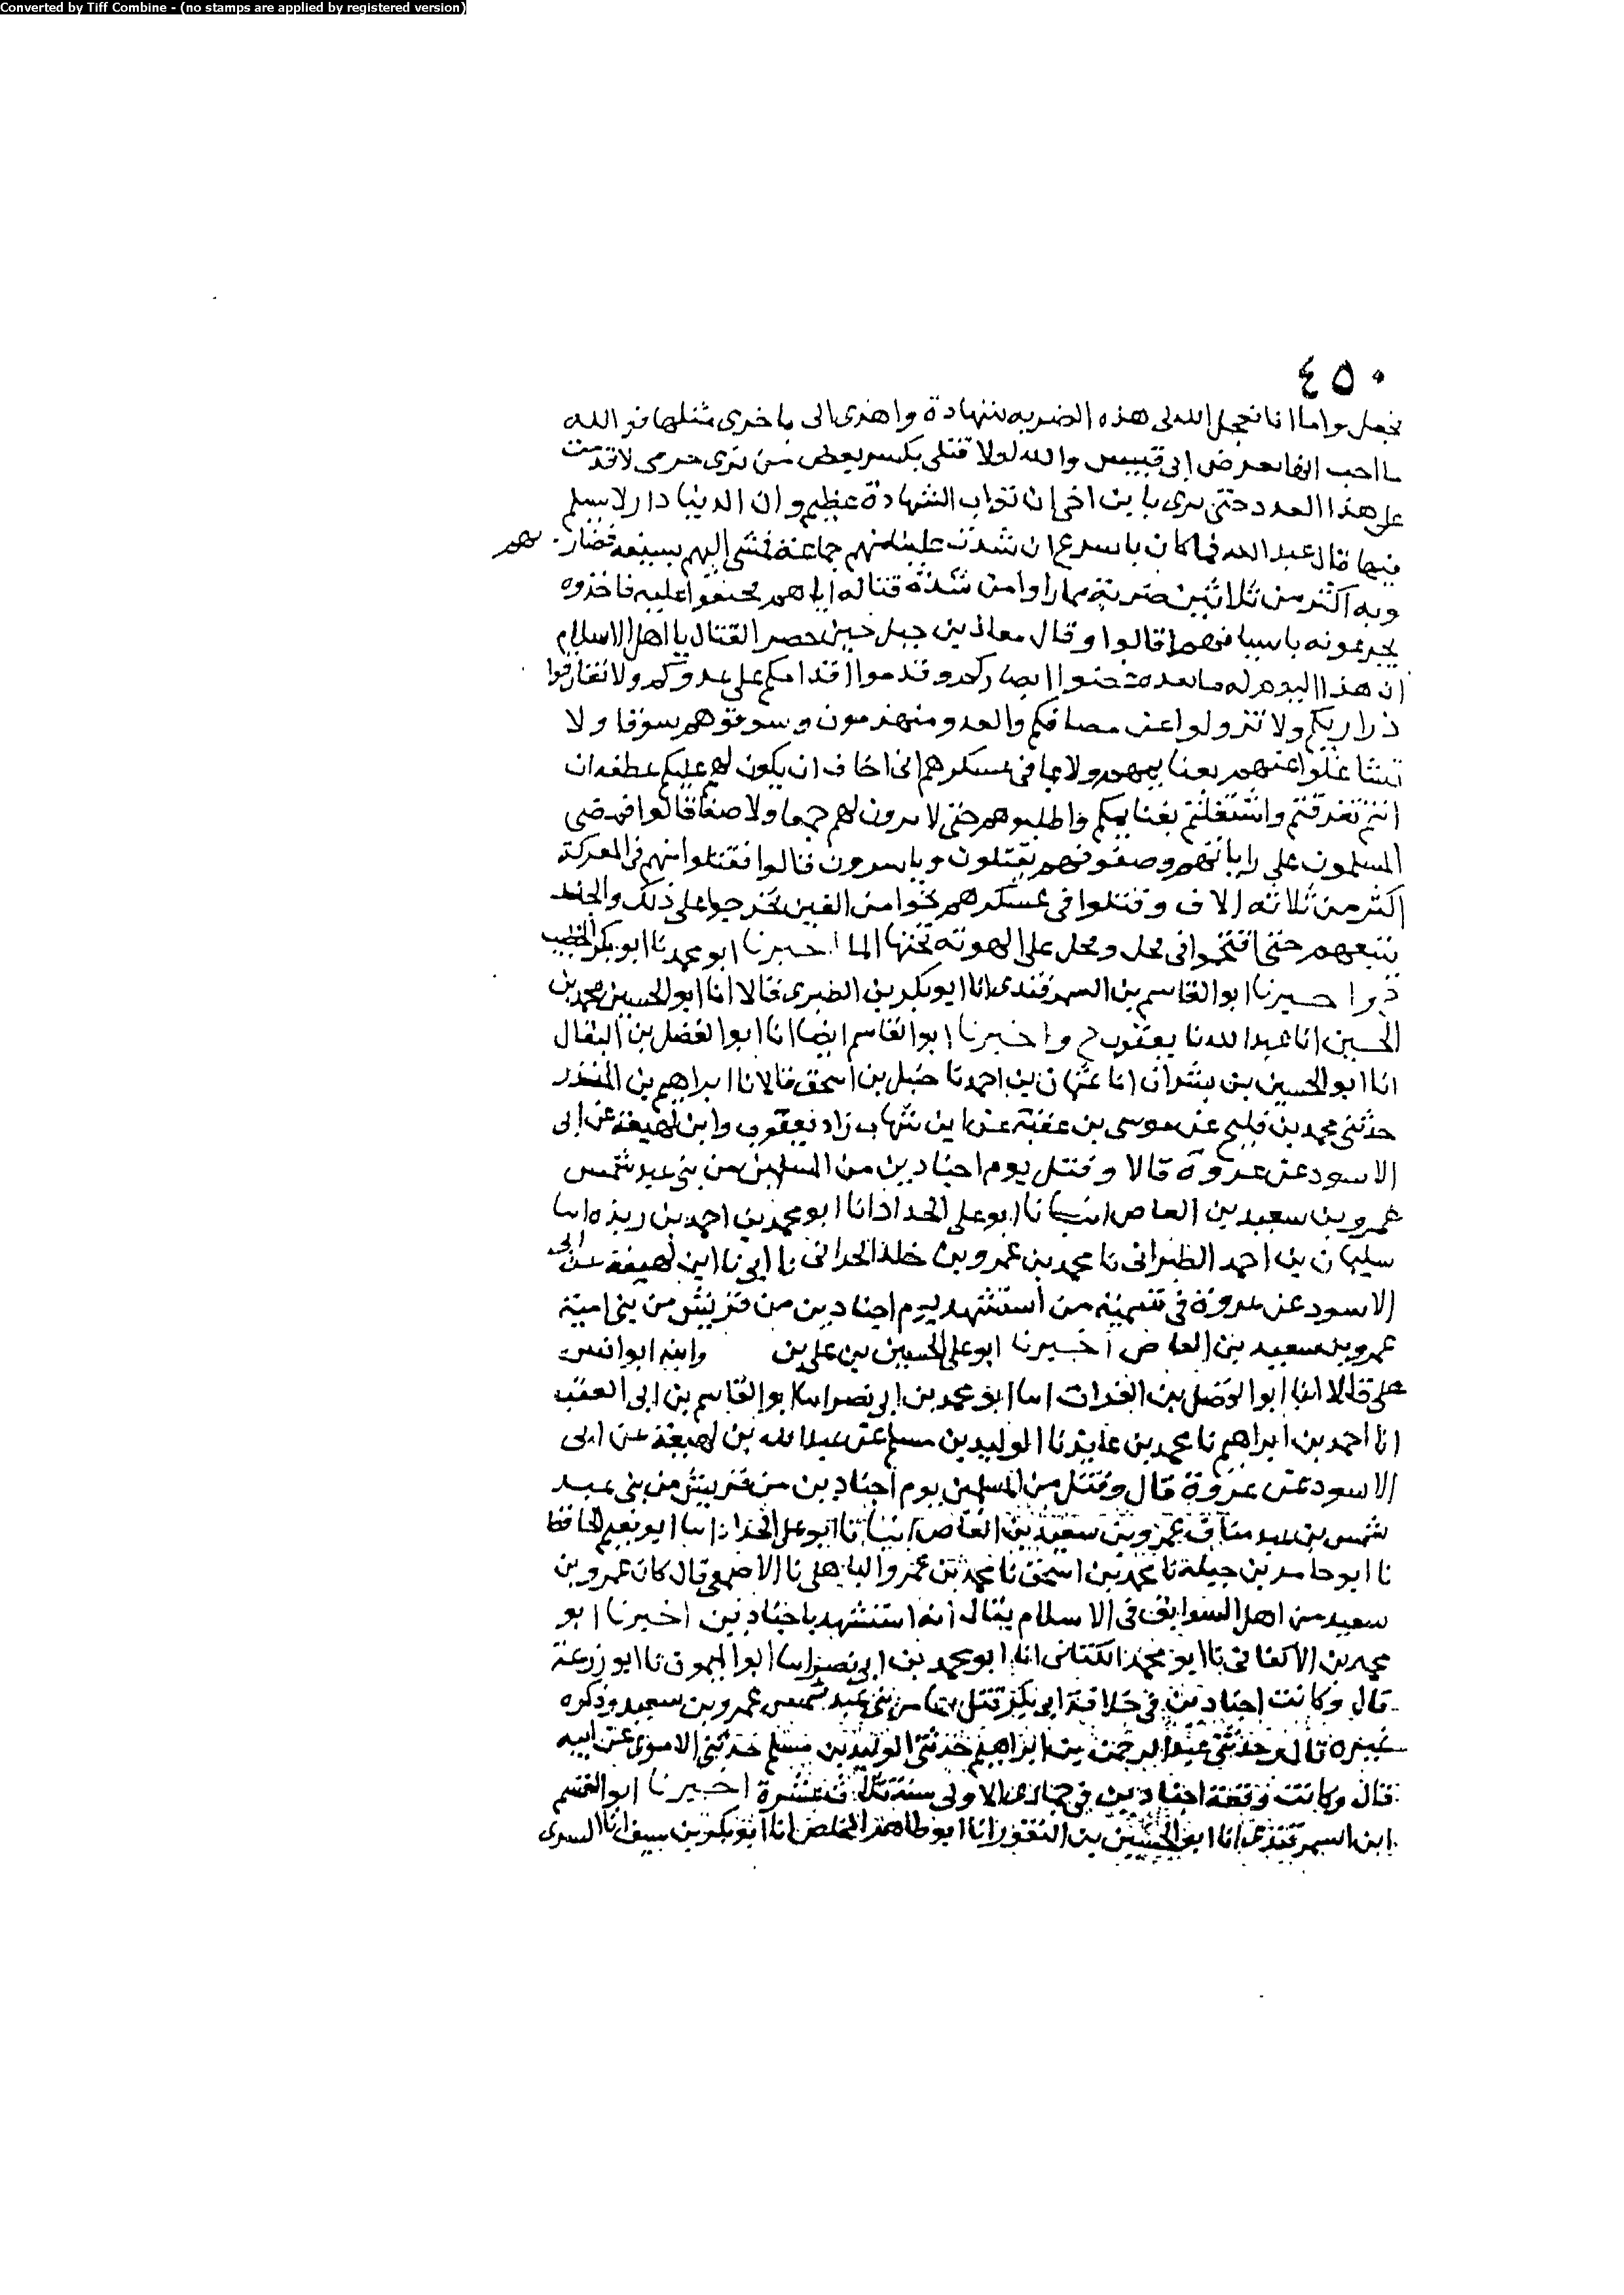 Converted by Tiff Combine - (no stamps are applied by registered version)
٤٥٠
واما انا فجعل الله لى هذه الضربه شهادة واهدى الى باخرى مثلها فو الله
ما احب انها بعرض ابى قبيس والله لولا قتلى بكسر بعض من ترى حرمى لاقدمت
على هذا العدو حتى يا بن اخى ان ثواب الشهادة عظيم وان الدنيا دار لا يسلم
فيها قال عبد الله فما كان باسرع ان شدت علينا منهم جماعة فمشى اليهم بسيفه فضاربهم
وبه اكثر من ثلاثين ضربة مما راوا من شدة قتاله اياهم عليه فاخذوه
باسيافهم قالوا وقال معاذ بن جبل حين حضر القتال يا اهل الاسلام
ان هذا اليوم له ما بعده ابصاركم وقدموا اقدامكم على عدوكم ولا تفارقوا
ذراريكم ولا تزولوا عن مصافكم والعدو منهزمون وسوقوهم سوقا ولا
تشاغلوا عنهم بغنايمهم ولا بما فى عسكرهم انى اخاف ان يكون لهم عليكم عطفه ان
انتم تفرقتم واشتغلتم بغنايمكم واطلبوهم حتى لا ترون لهم جمعا ولا صفا قالوا فمضى
المسلمون على راياتهم وصفوفهم يقتلون وياسرون قالوا فقتلوا منهم فى المعركة
اكثر من ثلاثه الاف وقتلوا فى عسكرهم نحوا من الفين فخرجوا على ذلك والجند
يتبعهم حتى اقتحموا فى فحل وفحل على الهوته تحتها الما اخبرنا ابو محمد نا ابو بكر الخطيب
واخبرنا ابو القاسم بن السمرقندى انا ابو بكر بن الطبرى قالا انا ابو الحسين محمد بن
الحسين انا عبد الله نا يعقوب ح واخبرنا ابو القاسم ايضا انا ابو الفضل بن البقال
انا ابو الحسين بن بشران انا عثمان بن احمد نا حنبل بن اسحق قالا نا ابراهيم بن المنذر
حدثنى محمد بن فليح عن موسى بن عقبة عن ابن شهاب زاد يعقوب وابن لهيعة عن ابى
الاسود عن عروة قالا وقتل يوم اجنادين من المسلمين من بنى عبد شمس
عمرو بن سعيد بن العاص انبانا ابو على الحداد انا ابو محمد بن احمد بن ريذه انبا
سليمان بن احمد الطبرانى نا محمد بن عمرو بن خلد الحرانى نا ابى نا ابن لهيعة عن ابى
الاسود عن عروة فى تسمية من استشهد يوم اجنادين من قريش من بنى امية
عمرو بن سعيد بن العاص اخبرنا ابو على الحسين بن على بن وابنه ابو
على قالا انا ابو الفضل بن الفرات انبا ابو محمد بن ابى نصر انبا ابو القاسم بن ابى العقب
انا احمد بن ابراهيم نا محمد بن عايذ نا الوليد بن مسلم عن عبد الله بن لهيعة عن ابى
الاسود عن عروة قال وقتل من المسلمين يوم اجنادين من قريش من بنى عبد
شمس بن عبد مناف عمرو بن سعيد بن العاص انبانا ابو على الحداد انبا ابو نعيم الحافظ
نا ابو حامد بن جبلة نا محمد بن اسحق نا محمد بن عمرو الباهلى نا الاصمعى قال كان عمرو بن
سعيد من اهل السوابق فى الاسلام يقال انه استشهد باجنادين اخبرنا ابو
محمد بن الاكفانى نا ابو محمد الكتانى انا ابو محمد بن ابى نصر انبا ابو الميمون نا ابو زرعة
قال وكانت اجنادين فى خلافة ابى بكر قتل بها من بنى عبد شمس عمرو بن سعيد وذكره
غيره قال وحدثنى عبد الرحمن بن ابراهيم حدثنى الوليد بن مسلم حدثنى الاموى عن ابيه
قال وكانت وقعة اجنادين فى جمادى الاولى سنة ثلاث عشرة اخبرنا ابو القسم
ابن السمرقندى انا ابو الحسين بن النقور انا ابو طاهر المخلص انا ابو بكر بن سيف انا السرى